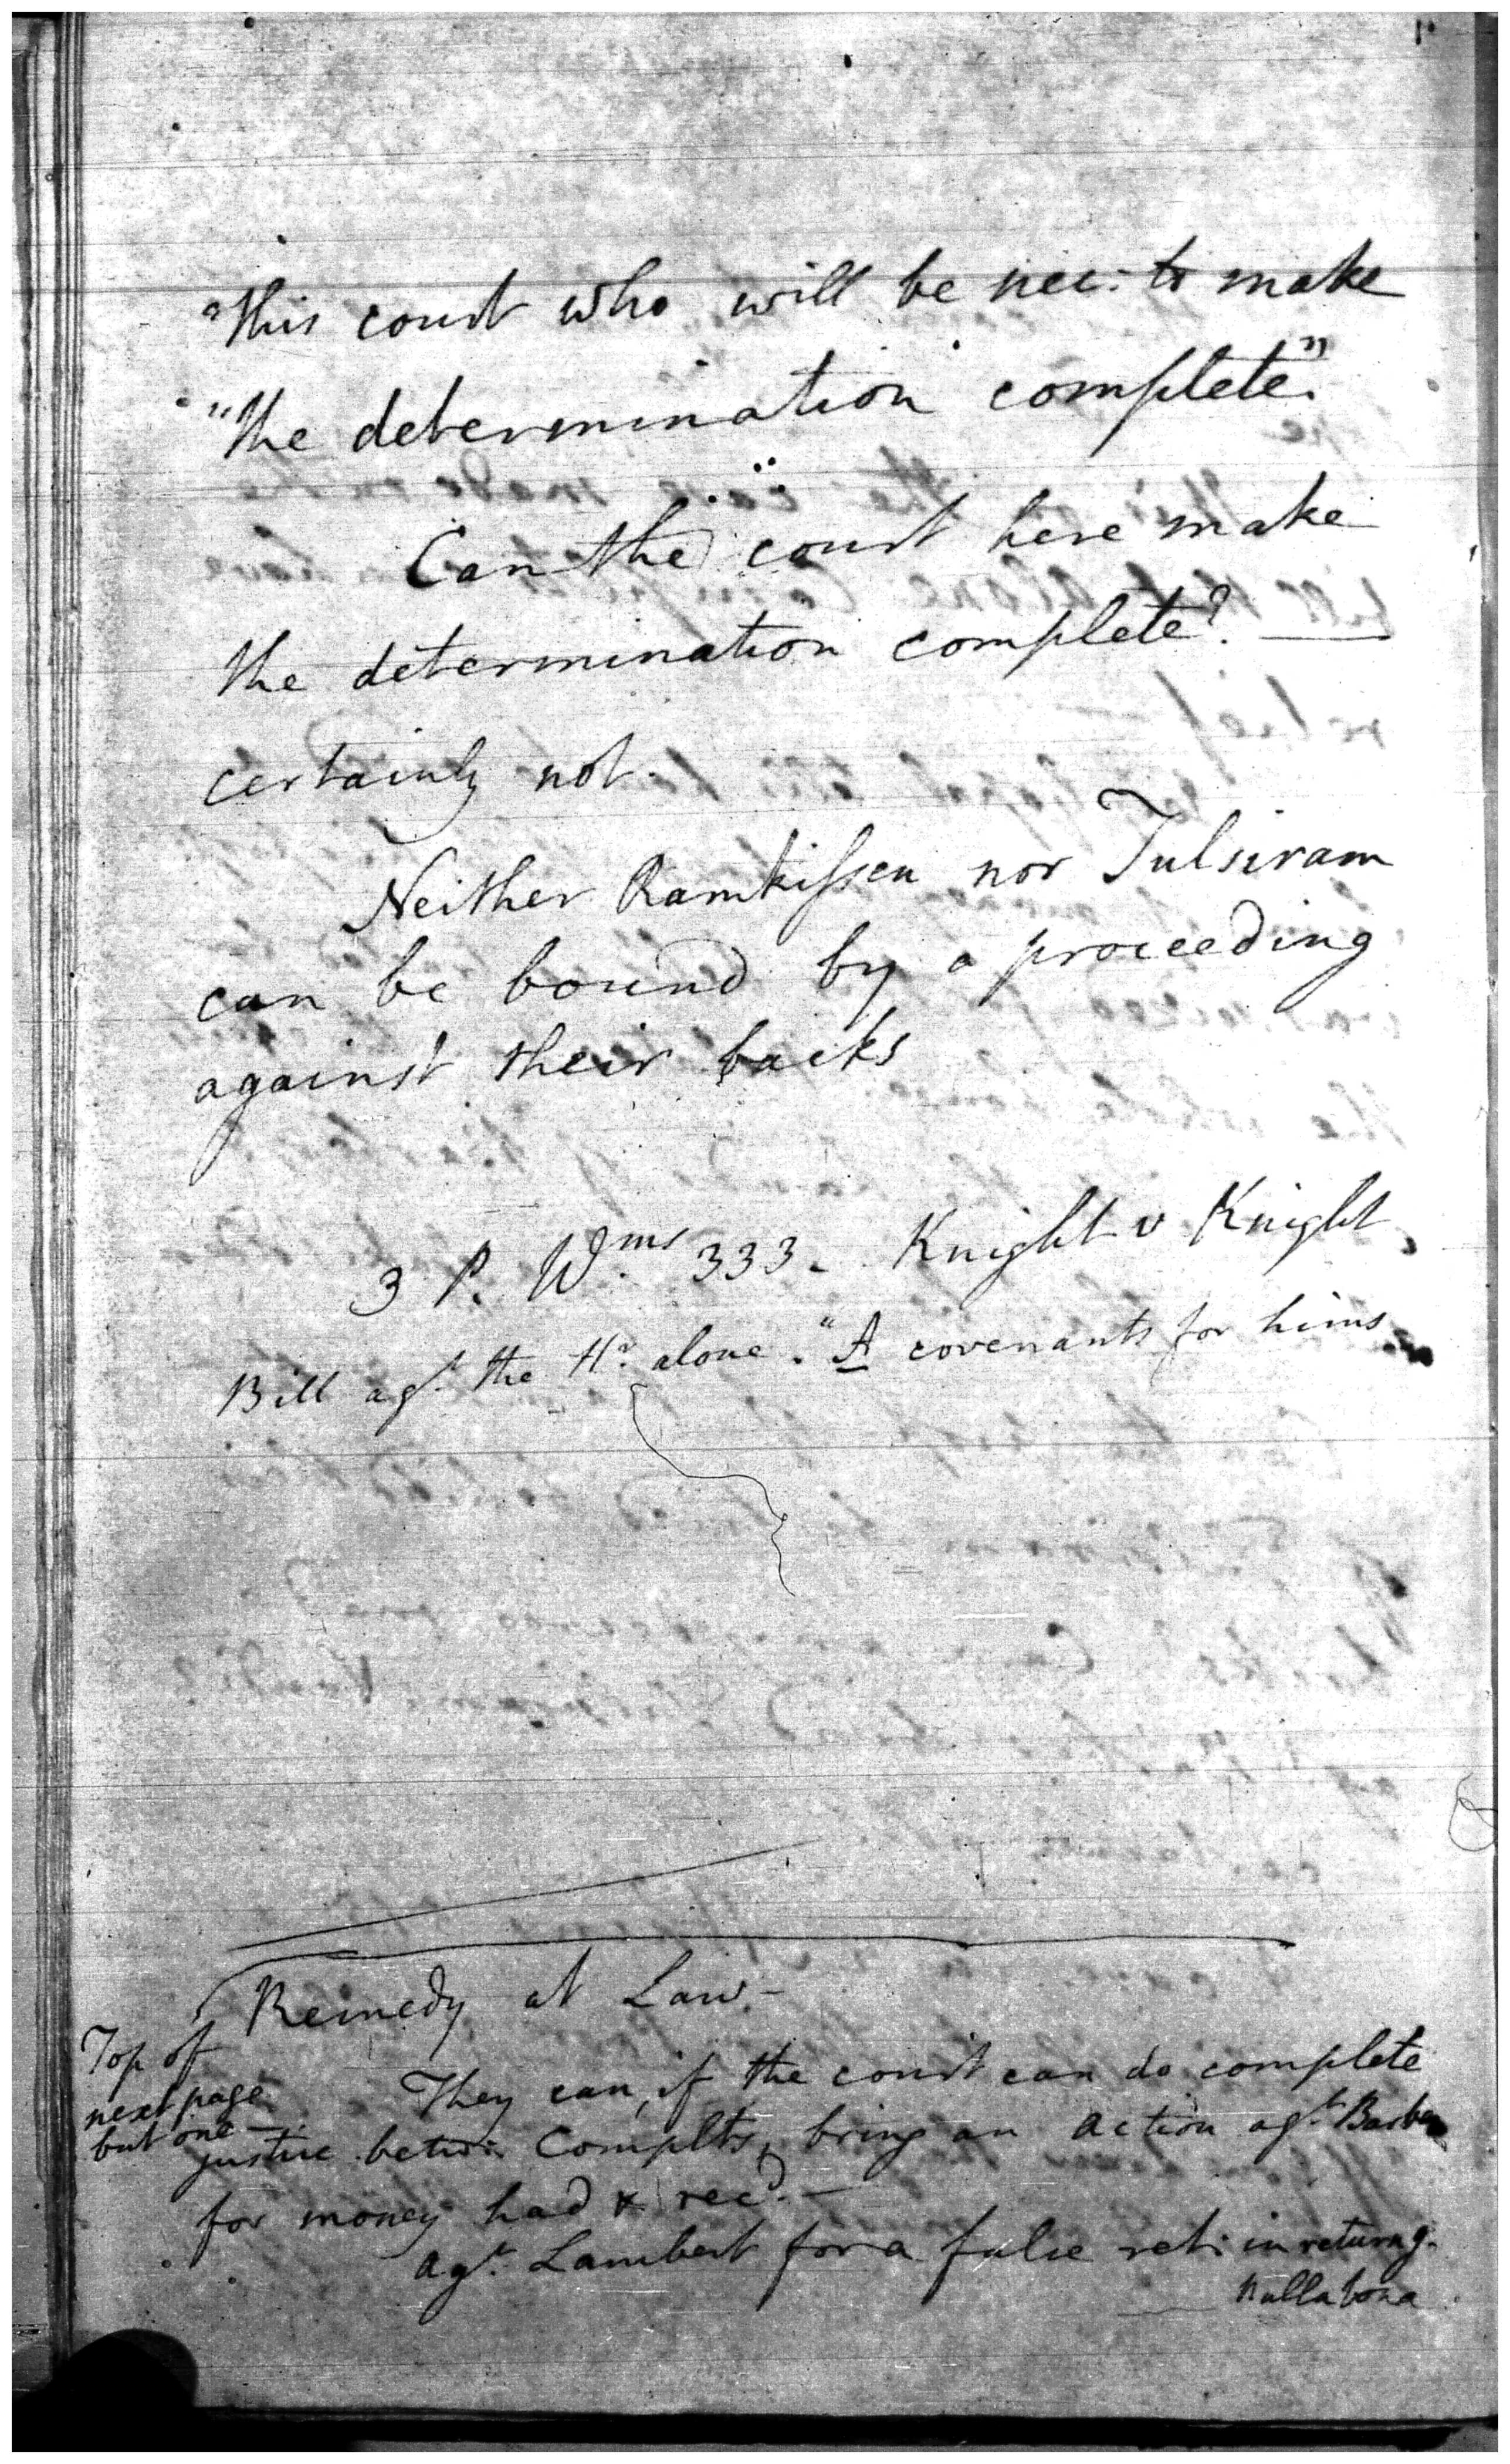 "this court who will be nec: to make
"the determination complete."
Can the court here make
the determination complete? —
certainly not.
Neither Ramkissen nor Tulsiram
can be bound by a proceeding
against their backs
3 P. Wms 333 - Knight v Knight
Bill agt. the Hr. alone. "A covenants for hims
Remedy at Law -
Top of
next page
but one -
They can, if the court can do complete
justice betwn Complts, bring an action agt. Barber
for money had & recd. -
agt. Lambert for a false ret: in returng.
nulla bona